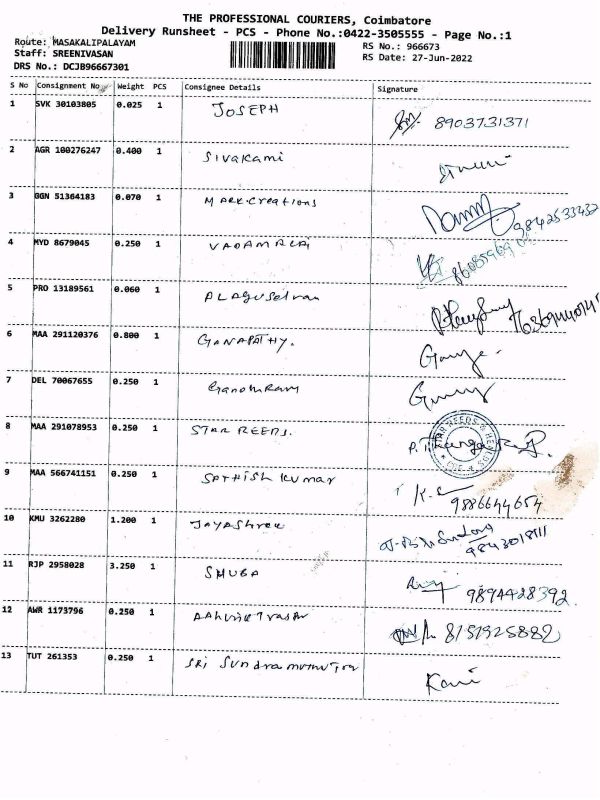 THE PROFESSIONAL COURIERS, Coimbatore
Delivery Runsheet - PCS - Phone No.:0422-3505555 - Page No.:1
Route: MASAKALIPALAYAM
Staff: SREENIVASAN
DRS No.: DCJB96667301
RS No.: 966673
RS Date: 27-Jun-2022
S No Consignment No Weight PCS Consignee Details Signature
1 SVK 30103805 0.025 1 JOSEPH 8903731371
2 AGR 100276247 0.400 1 Sivakami
3 GGN 51364183 0.070 1 MARK Creations 9842533432
4 MYD 8679045 0.250 1 VADAMALAI
5 PRO 13189561 0.060 1
6 MAA 291120376 0.800 1 GANAPATHY.
7 DEL 70067655 0.250 1
8 MAA 291078953 0.250 1 STAR REEDS.
9 MAA 566741151 0.250 1 SATHISH KUMAR K.S 9886644654
10 KMU 3262280 1.200 1 JAYAShree
11 RJP 2958028 3.250 1 SHUBA 9894428392
12 AWR 1173796 0.250 1 8151925882
13 TUT 261353 0.250 1 SRI